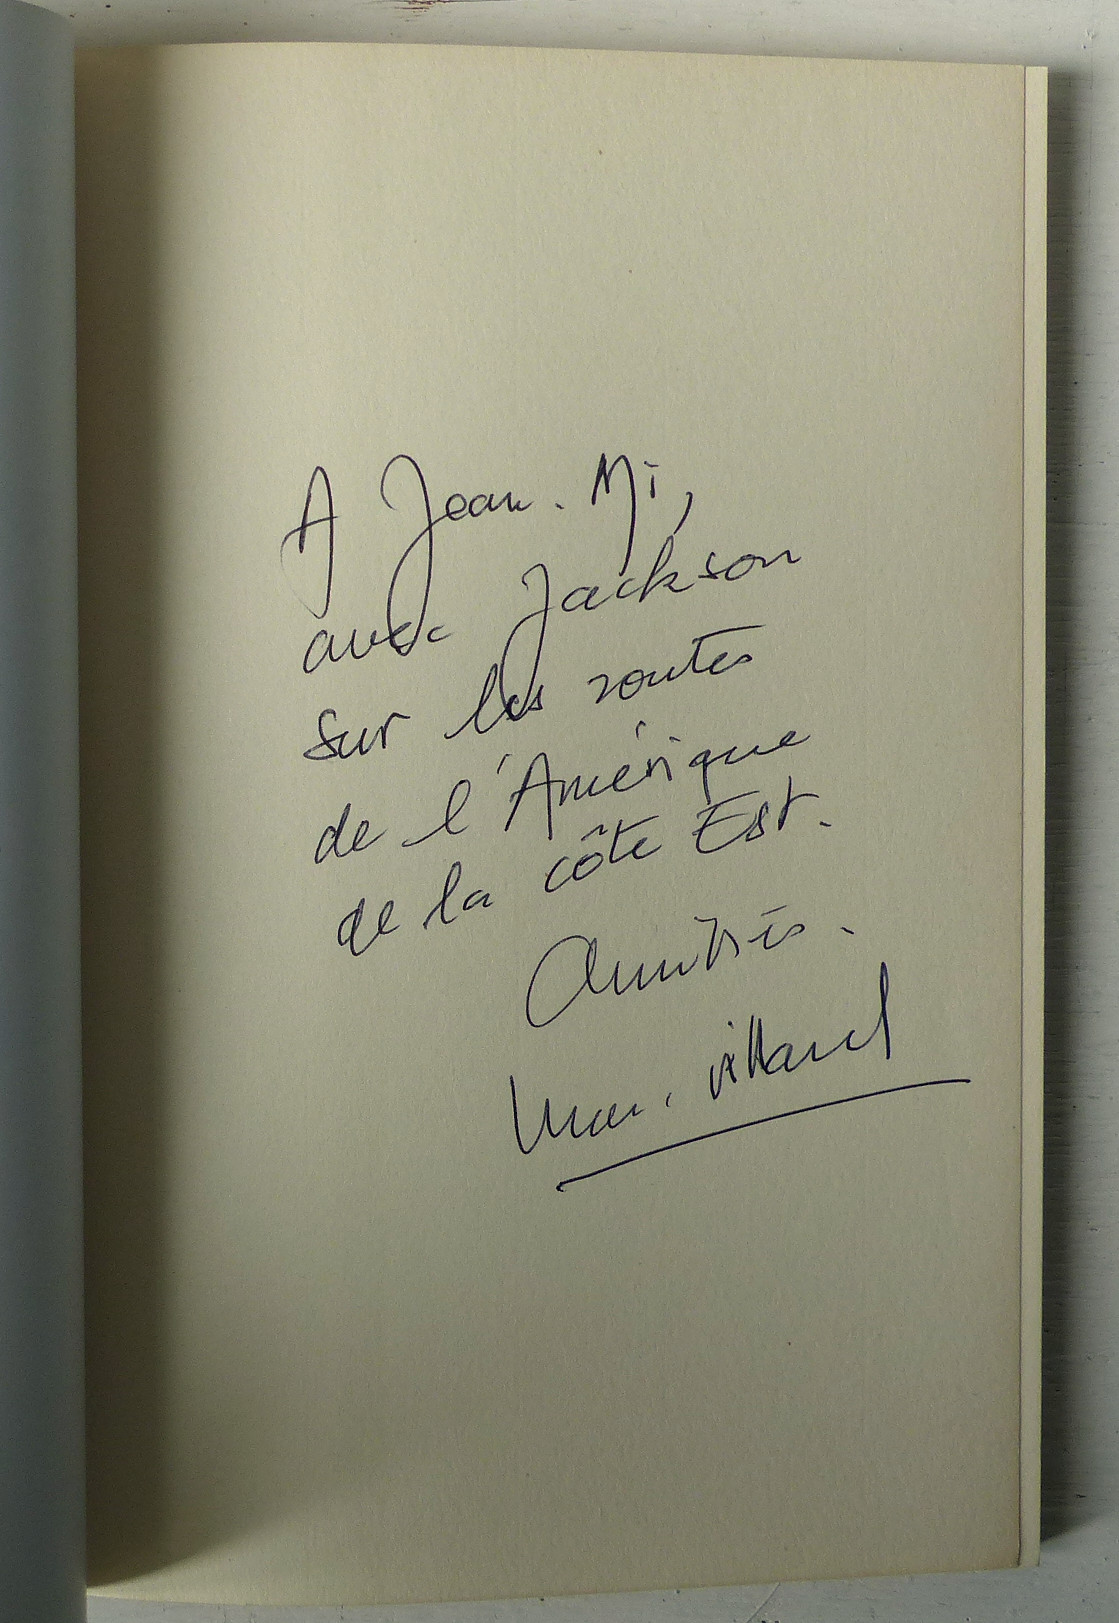 A Jean-Mi,
avec Jackson
sur les routes
de l'Amérique
de la côte Est.
Amitiés.
Marc Villard